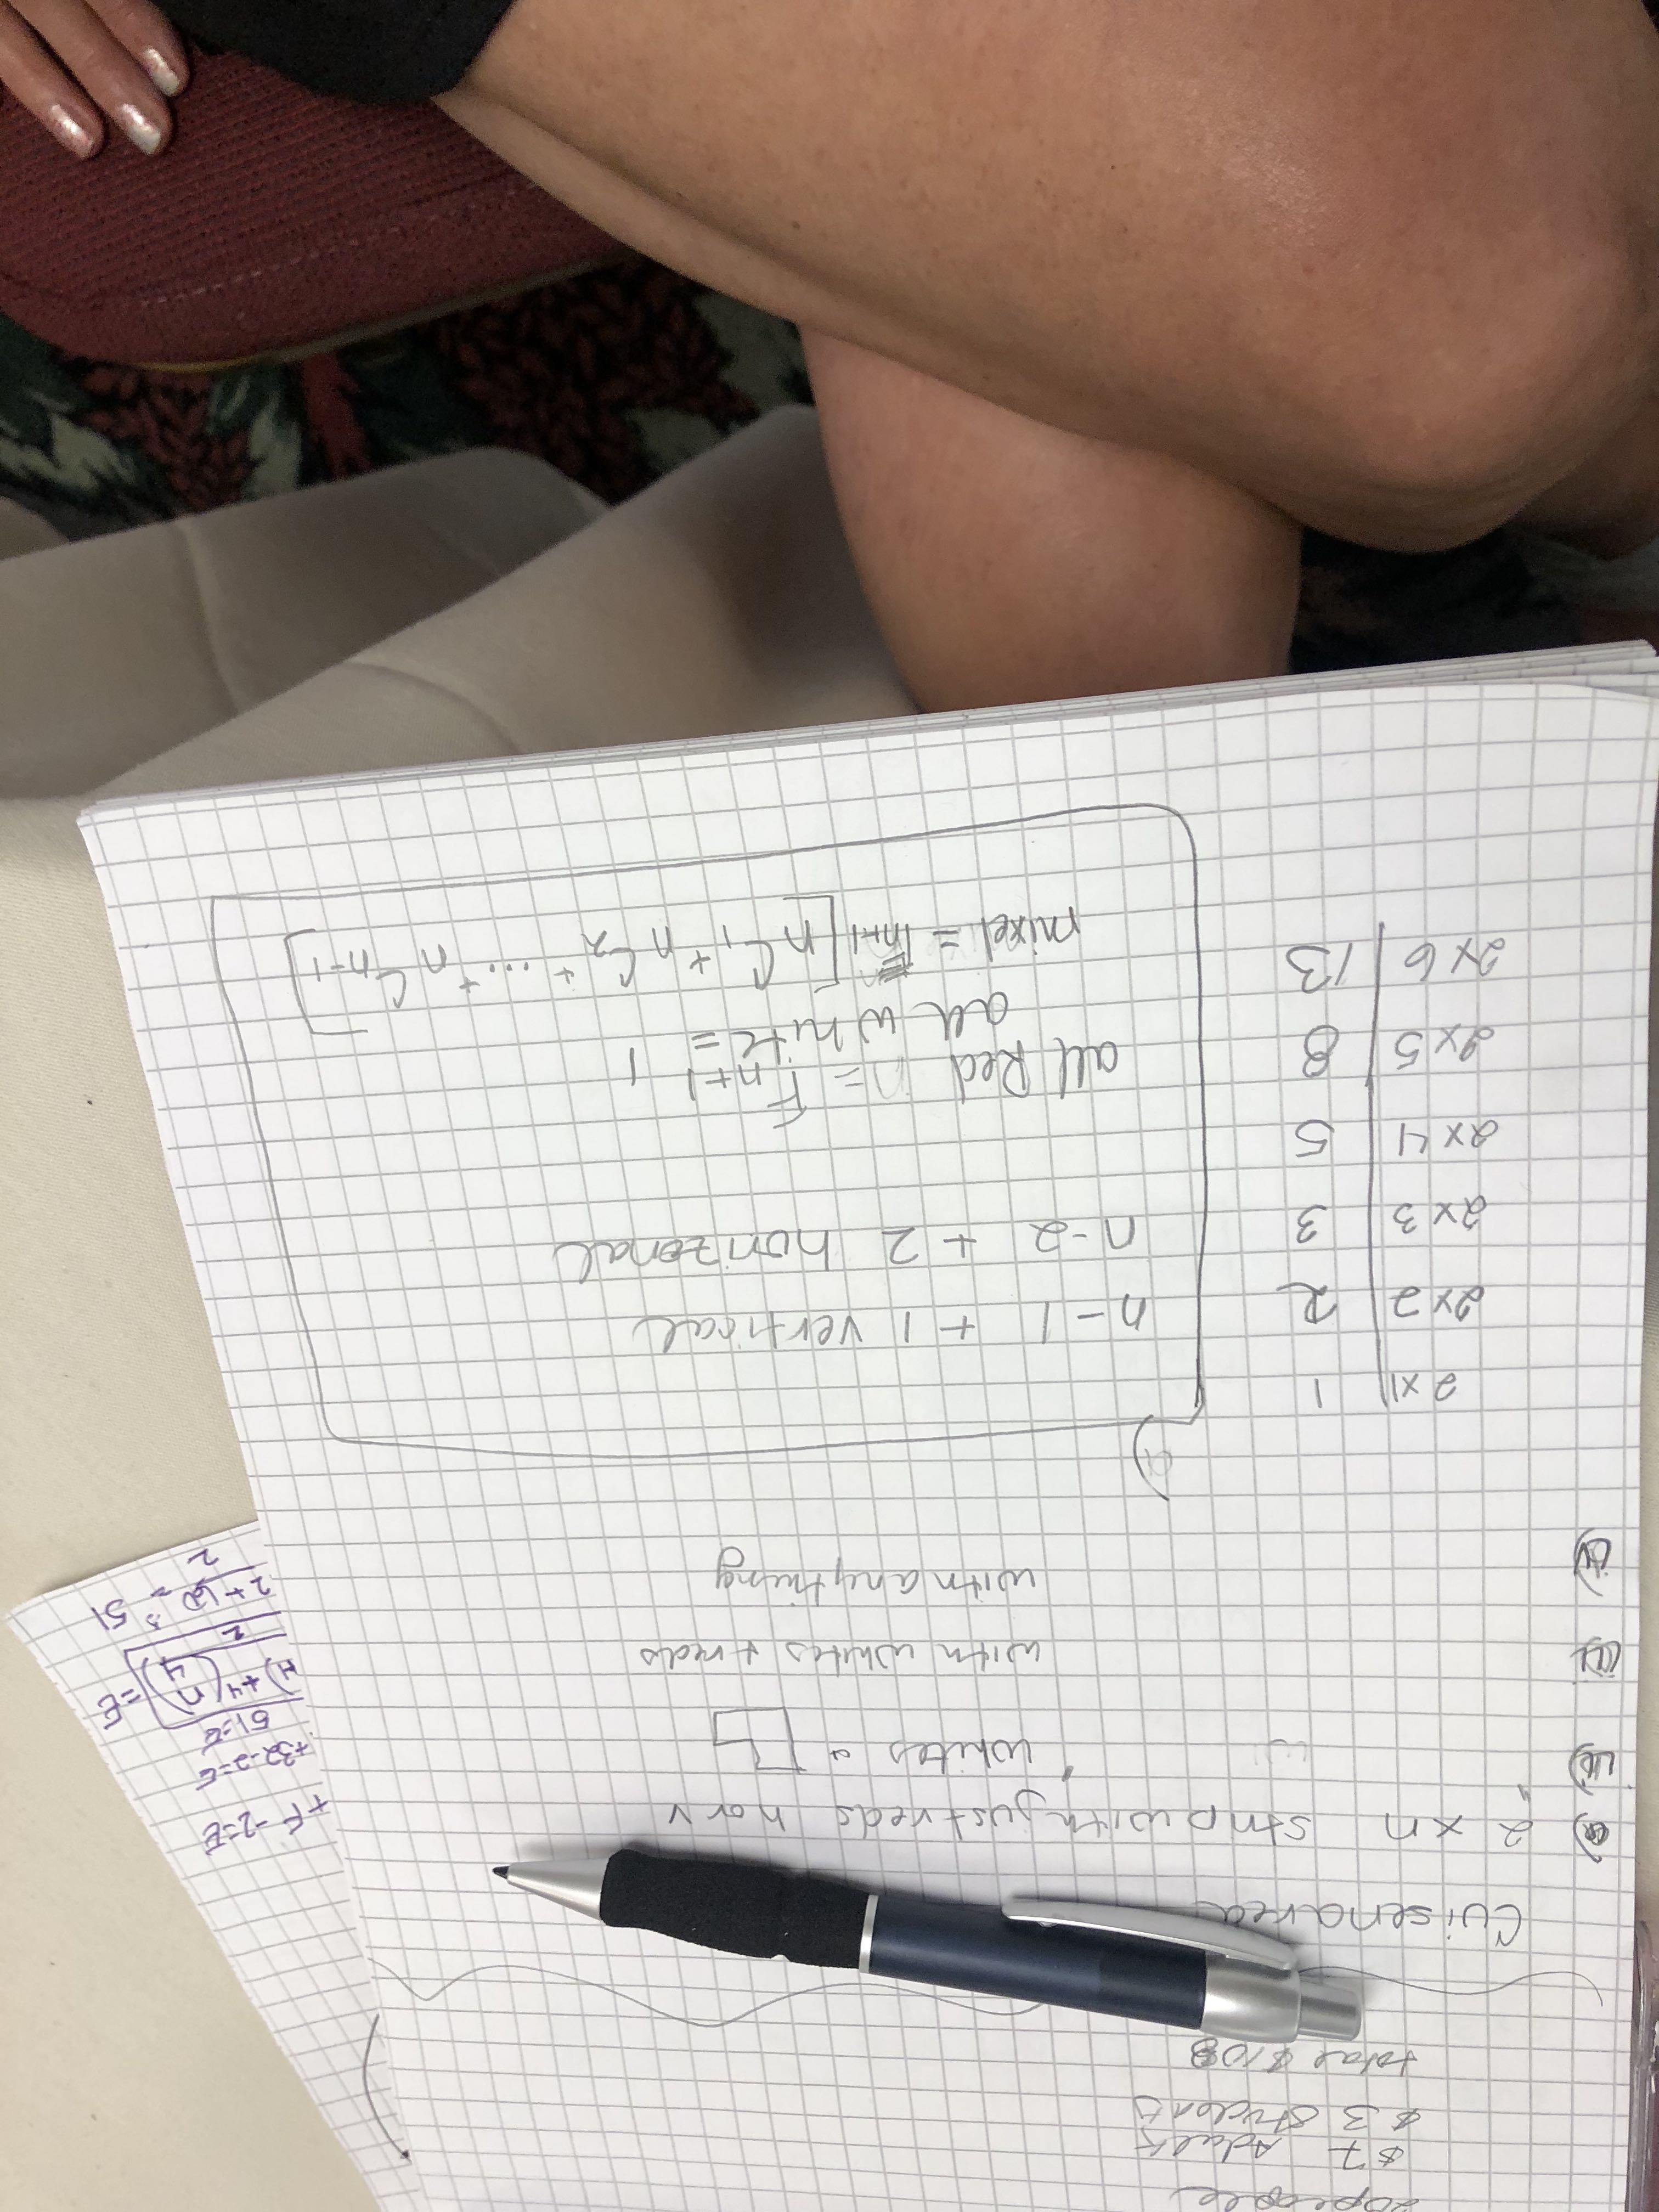 20 people
$7 Adults
$3 Students
total $108
Cuisenarea
a) 2 xn strip with just reds h or v
whites +
with whites + reds
with anything
a)
2x1 1
2x2 2
2x3 3
2x4 5
2x5 8
2x6 13
n-1 + 1 vertical
n-2 + 2 horizonal
all Red n = Fn+1
all white = 1
mixed = Fn+1 [nC1 + nC2 + ... + nCn-1]
+F-2=E
+32-2=E
51=E
+4(n/4) = E
2
2+100 = 51
2